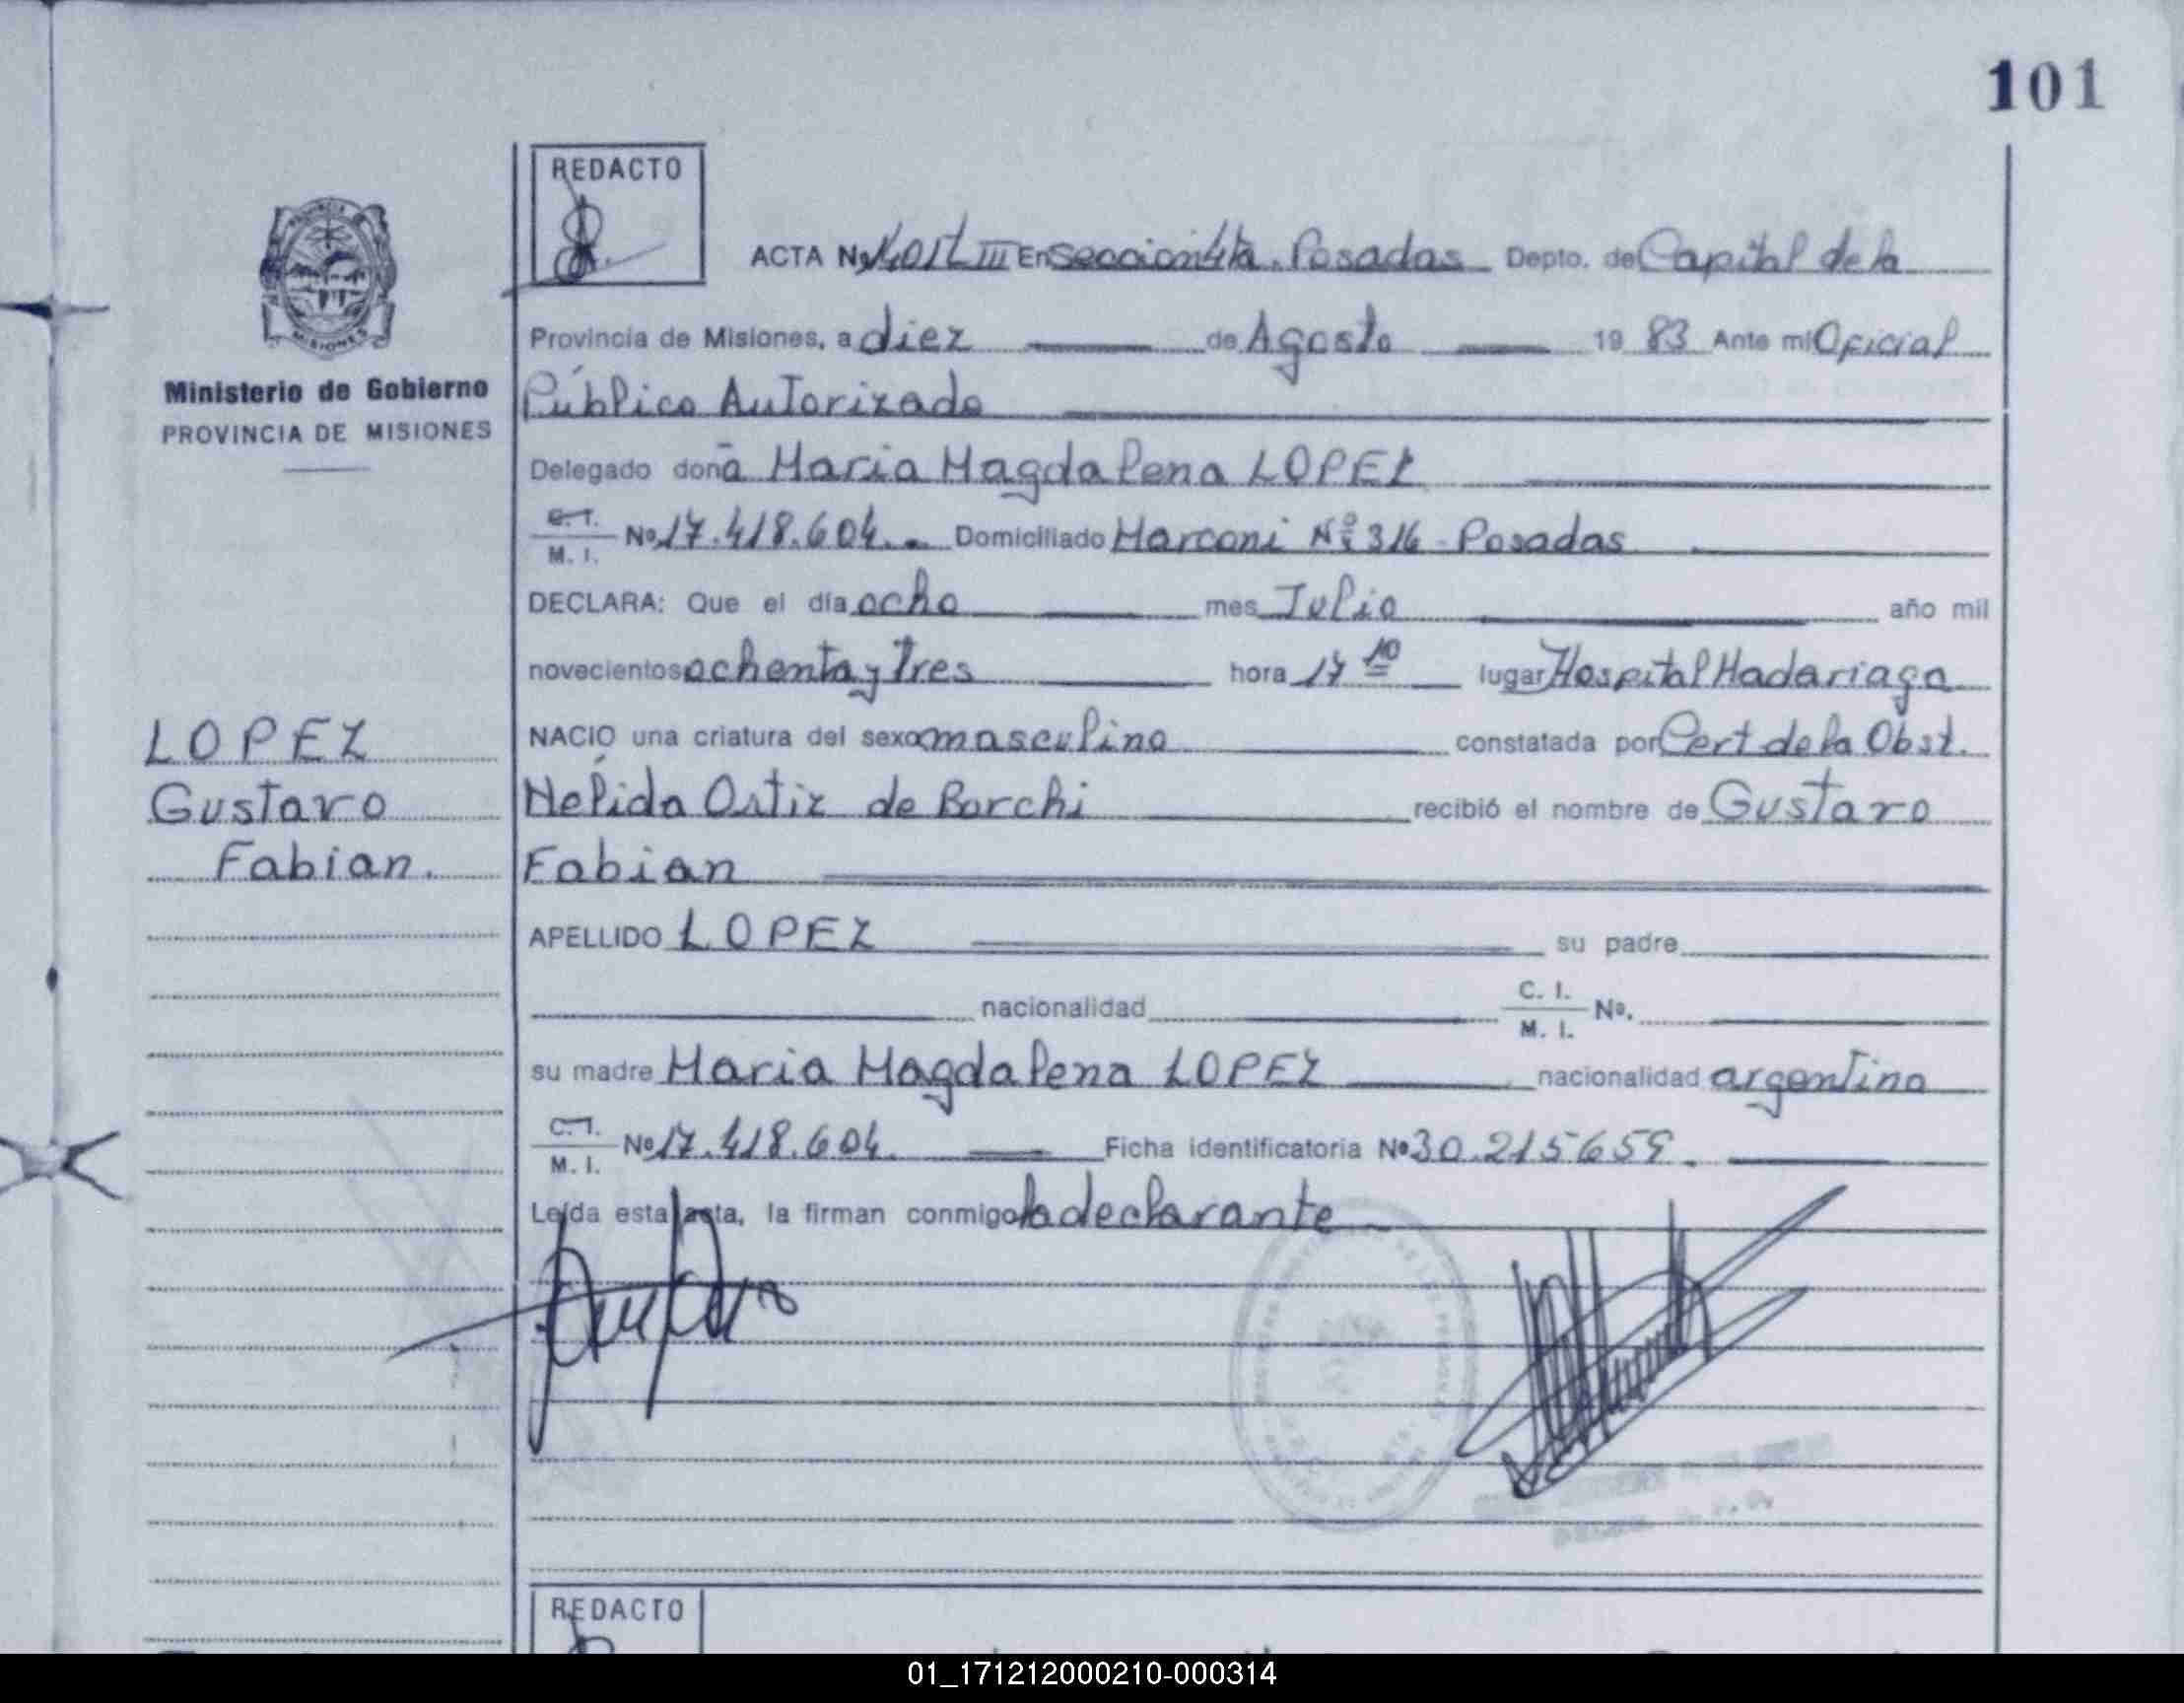 101
REDACTO
ACTA No 1401 T III En Sección 4ta. Posadas Depto. de Capital de la
Provincia de Misiones, a diez de Agosto 19 83 Ante mi Oficial
Ministerio de Gobierno
PROVINCIA DE MISIONES
Público Autorizado
Delegado doña Maria Magdalena LOPEZ
C.I. M. I. No 17.418.604. Domiciliado Marconi Nº 316 - Posadas
DECLARA: Que el día ocho mes Julio año mil
novecientos ochenta y tres hora 17 10 lugar Hospital Madariaga
LOPEZ
Gustavo
Fabian.
NACIO una criatura del sexo masculino constatada por Cert de la Obst.
Nélida Ortiz de Borchi recibió el nombre de Gustavo
Fabian
APELLIDO LOPEZ su padre
nacionalidad C. I. M. I. No.
su madre Maria Magdalena LOPEZ nacionalidad argentina
C.I. M. I. No 17.418.604. Ficha identificatoria No 30.215659.
Leída esta acta, la firman conmigo la declarante
REDACTO
01_171212000210-000314